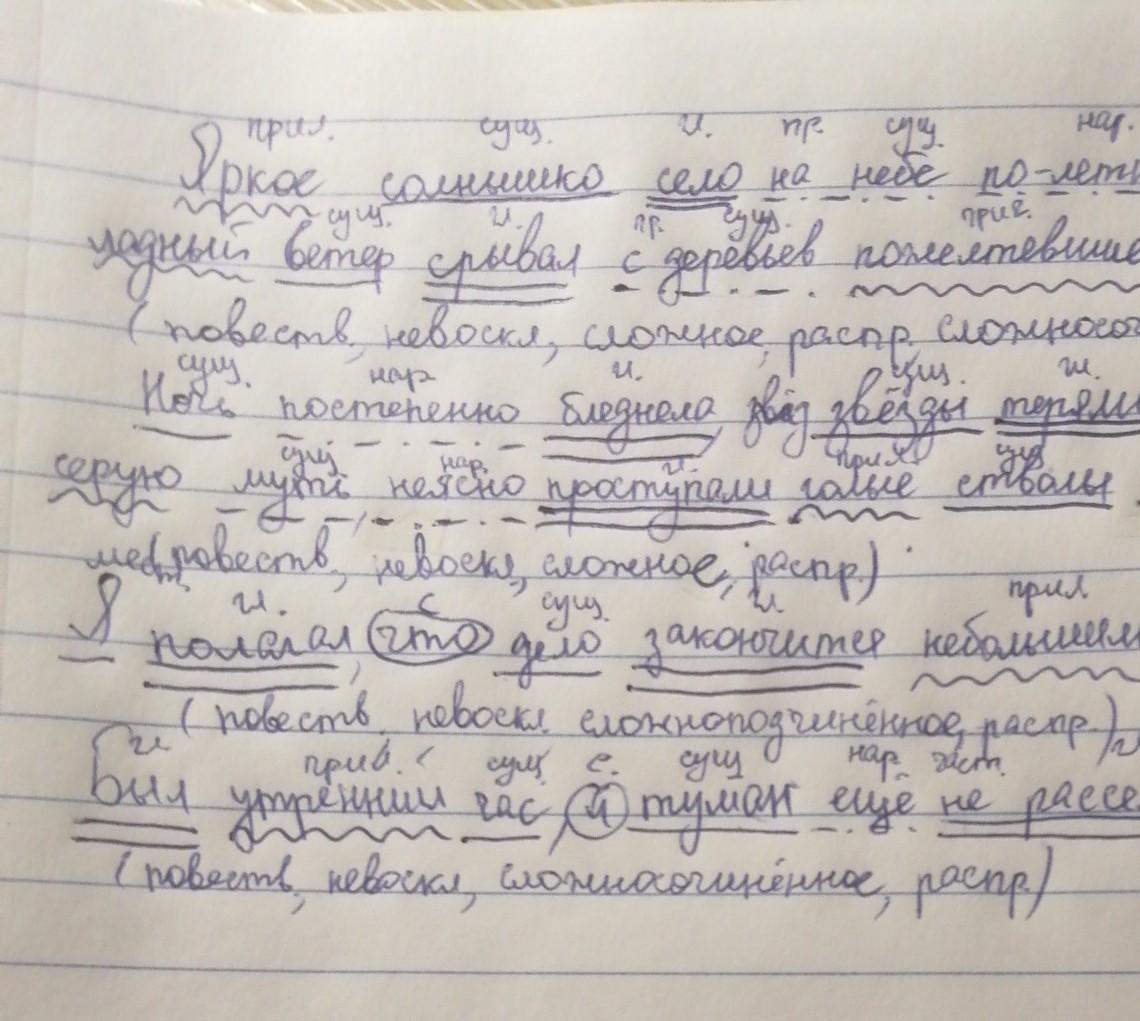 прил. сущ. г. пр. сущ. нар.
Яркое солнышко село на небе по-летн
сущ. г. пр. сущ. прил.
ладный ветер срывал с деревьев пожелтевшие
(повеств, невоскл, сложное, распр. сложносо
сущ. нар г. сущ. г.
Ночь постепенно бледнела, звёзды теряли
сущ нар. г. прил. сущ
серую муть, неясно проступали голые стволы
(повеств, невоскл, сложное, распр.)
г. с сущ. г прил
Я полагал, что дело закончится небольшим
(повеств, невоскл. сложноподчинённое, распр.)
г прил. сущ с. сущ нар. част.
Был утренний час, и туман ещё не рассе
(повеств, невоскл, сложносочинённое, распр)